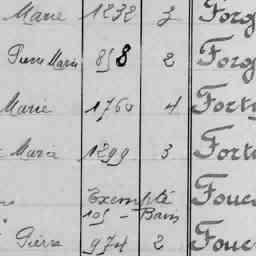 Marie 1232 3 Forg
Pierre Marie 858 2 Forg
Marie 1760 4 Fort
Marie 1299 3 Fort
Exempté Fouc
105 - Bam
Pierre 974 2 Fouc